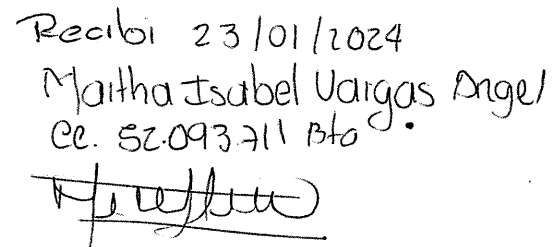 Recibi 23/01/2024
Martha Isabel Vargas Angel
CC. 52.093.711 Bta